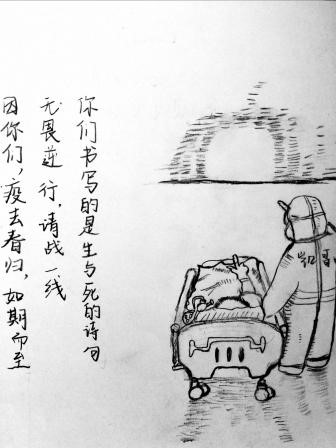 你们书写的是生与死的诗句
无畏逆行，请战一线
因你们，疫去春归，如期而至